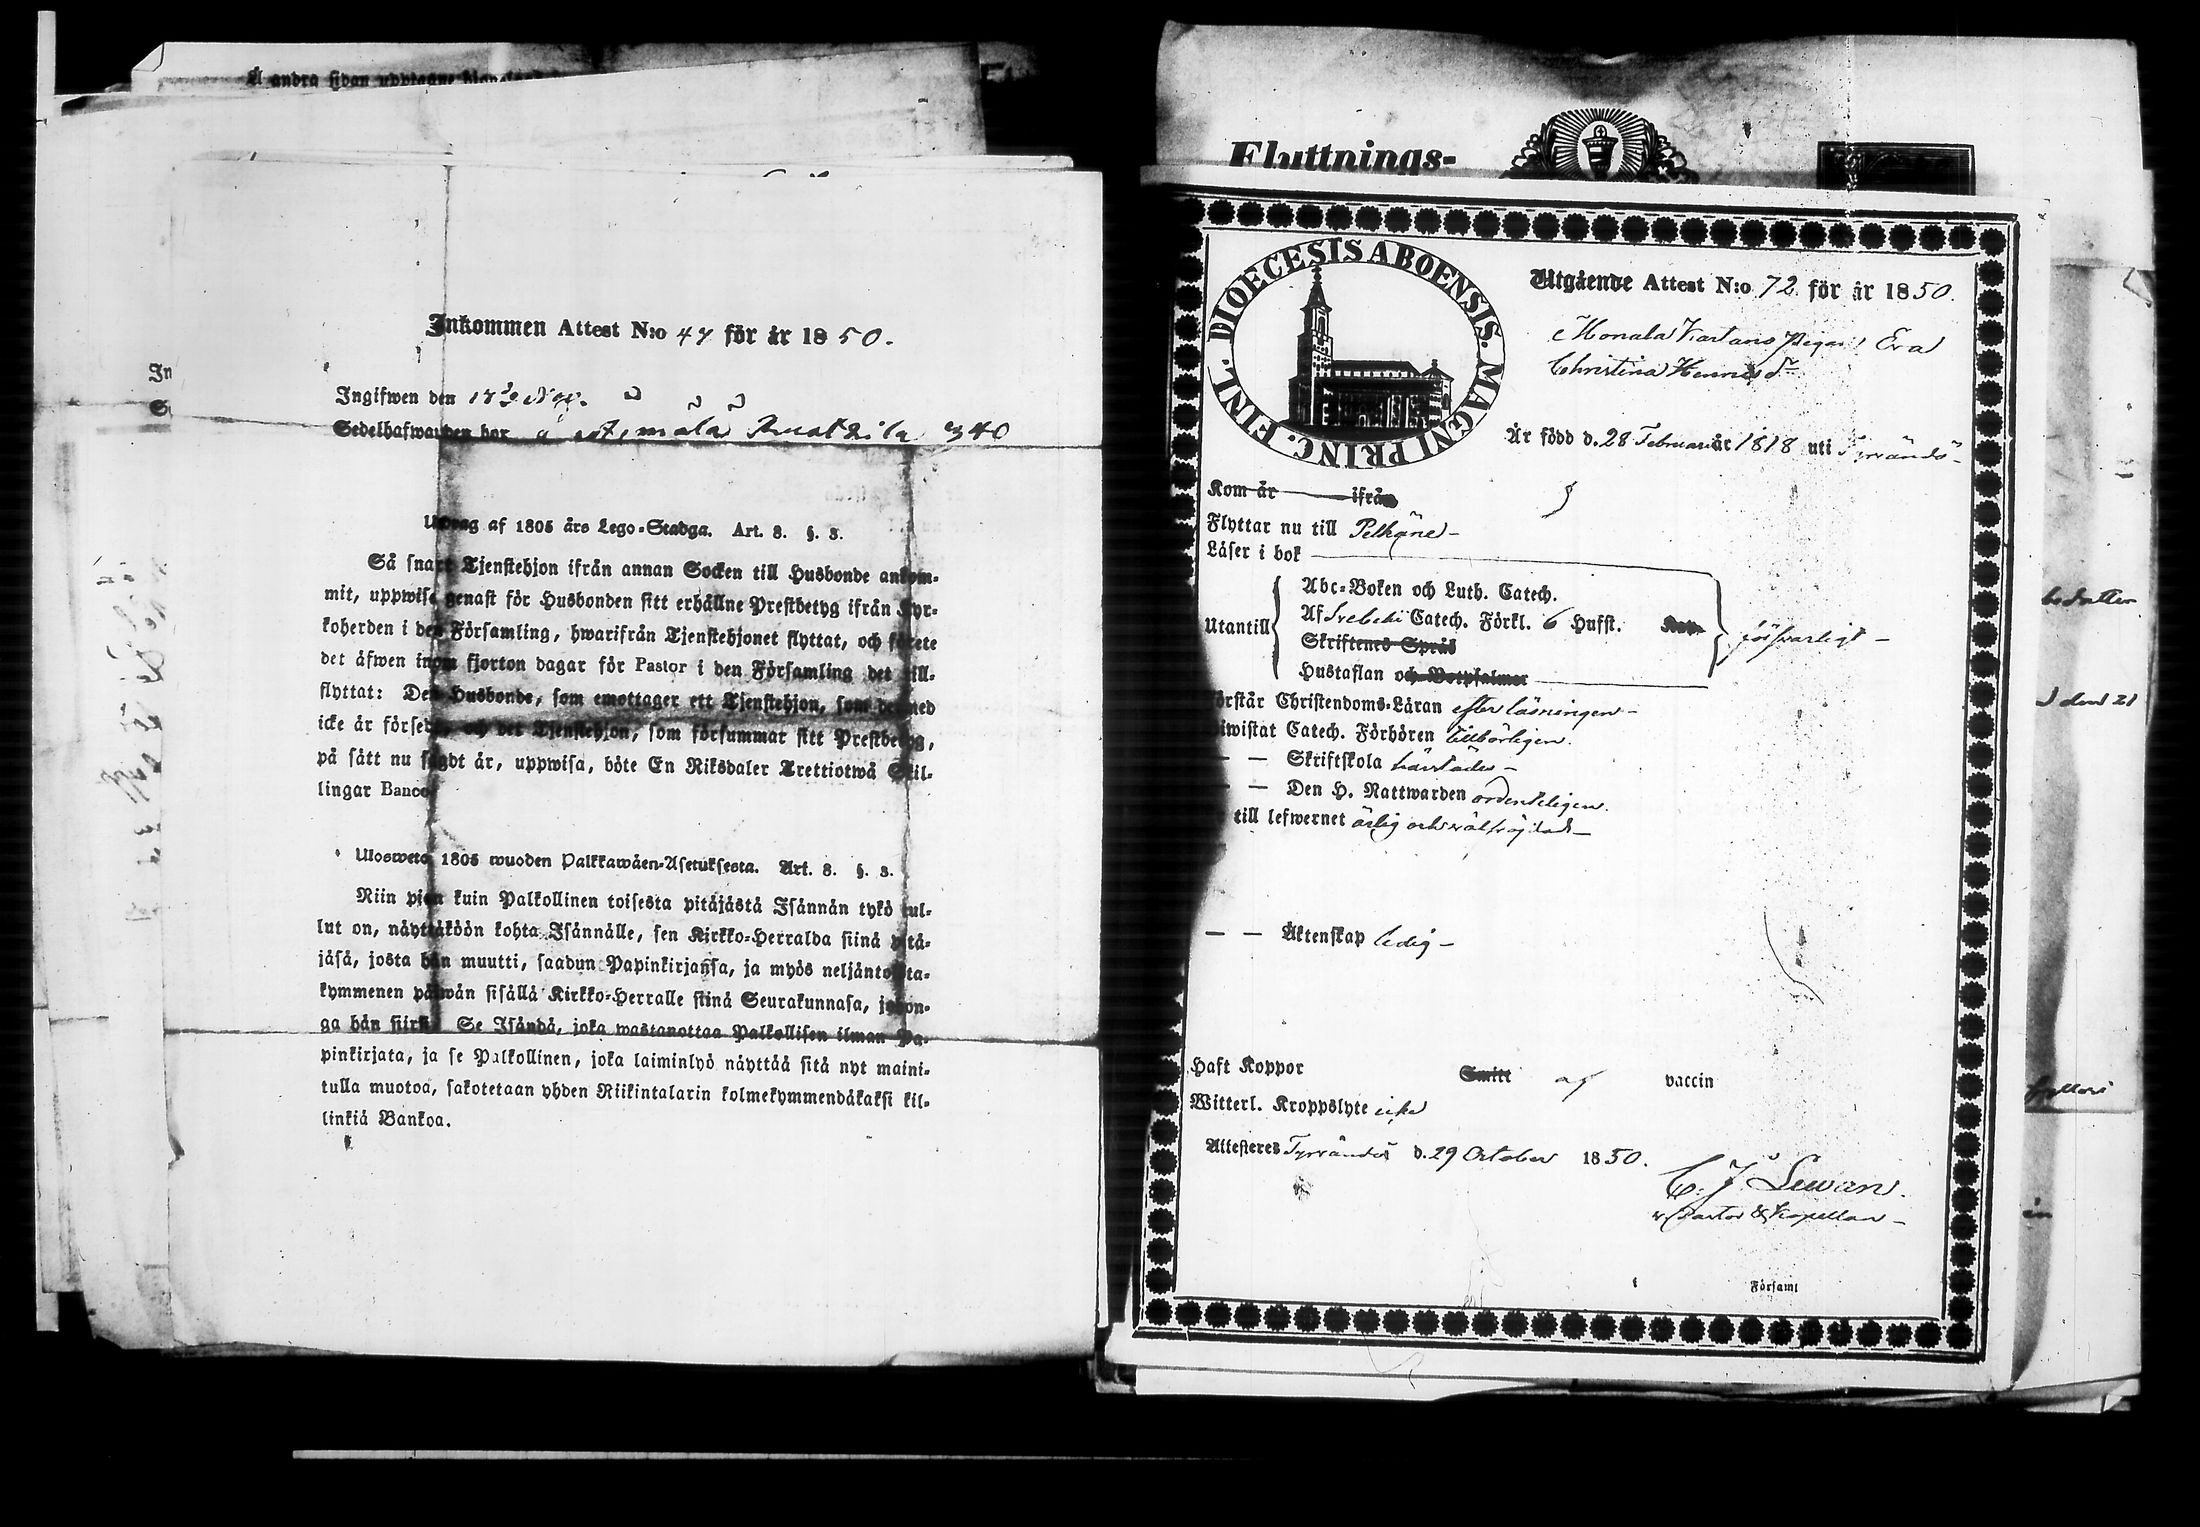 Å andra sidan upptagne
Inkommen Attest N:o 47 för år 1850.
In
S
Ingifwen den Nov.
Sedelhafwanden bor 340
Utdrag af 1805 års Lego-Stadga. Art. 8. §. 3.
Så snart Tjenstehjon ifrån annan Socken till Husbonde ankom-
mit, uppwise genast för Husbonden sitt erhållne Prestbetyg ifrån Kyr-
koherden i den Församling, hwarifrån Tjenstehjonet flyttat, och förete
det äfwen inom fjorton dagar för Pastor i den Församling det till-
flyttat: Den Husbonde, som emottager ett Tjenstehjon, som dermed
icke är försedt, och det Tjenstehjon, som försummar sitt Prestbetyg,
på sätt nu sagdt är, uppwisa, böte En Riksdaler Trettiotwå Skil-
lingar Banco.
Ulosweto 1805 wuoden Palkkawäen-Asetuksesta. Art. 8. §. 3.
Niin pian kuin Palkollinen toisesta pitäjästä Isännän tykö tul-
lut on, näyttäköön kohta Isännälle, sen Kirkko-Herralda siinä pitä-
jäsä, josta hän muutti, saadun Papinkirjansa, ja myös neljäntoista-
kymmenen päiwän sisällä Kirkko-Herralle siinä Seurakunnasa, johon-
ga hän siirsi. Se Isändä, joka wastanottaa Palkollisen ilman Pa-
pinkirjata, ja se Palkollinen, joka laiminlyö näyttää sitä nyt maini-
tulla muotoa, sakotetaan yhden Riikintalarin kolmekymmendäkaksi kil-
linkiä Bankoa.
Flyttnings-
FINL. DIOECESIS ABOENSIS. MAGNI PRINC.
Utgående Attest N:o 72 för år 1850.
Monala Kartano Pigan Eva
Christina Henricsdr
Är född d. 28 Februari år 1818 uti Tyrvändö-
Kom år ifrån
Flyttar nu till Pelkäne-
Läser i bok
Abc-Boken och Luth. Catech.
Af Svebelii Catech. Förkl. 6 Hufst.
Utantill försvarligt -
Skriftenes Språk
Hustaflan och Botpsalmer
Förstår Christendoms-Läran efter läsningen -
Biwistat Catech. Förhören tillbörligen.
— — Skriftskola härstädes -
— — Den H. Nattwarden ordenteligen.
till lefwernet ärlig och välfrejdad -
— — Äktenskap ledig -
Haft Koppor Smitt af vaccin
Witterl. Kroppslyte icke
Attesteras Tyrvändö d. 29 October 1850.
C. J. Lewan.
v. Pastor & Kapellan -
Församl
d den 21